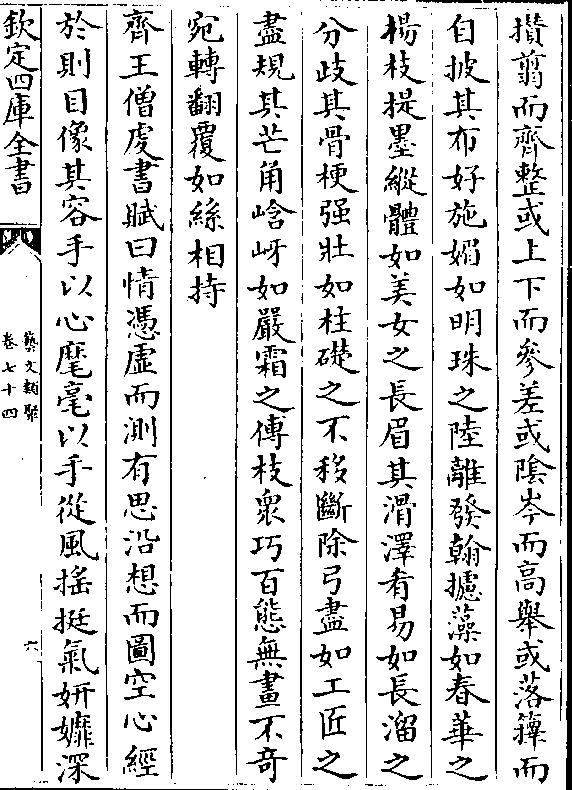 攢翦而齊整或上下而參差或隂岑而高舉或落籜而
自披其布好施媚如明珠之陸離發翰攄藻如春華之
楊枝提墨縱體如美女之長眉其滑澤肴易如長溜之
分歧其骨梗强壯如柱礎之不移斷除弓盡如工匠之
盡規其芒角嶮岈如嚴霜之傅枝衆巧百態無畫不奇
宛轉翻覆如絲相持
齊王僧䖍書賦曰情憑虛而測有思沿想而圖空心經
於則目像其容手以心麾毫以手從風揺挺氣妍孊深
欽定四庫全書
藝文類聚
卷七十四
六